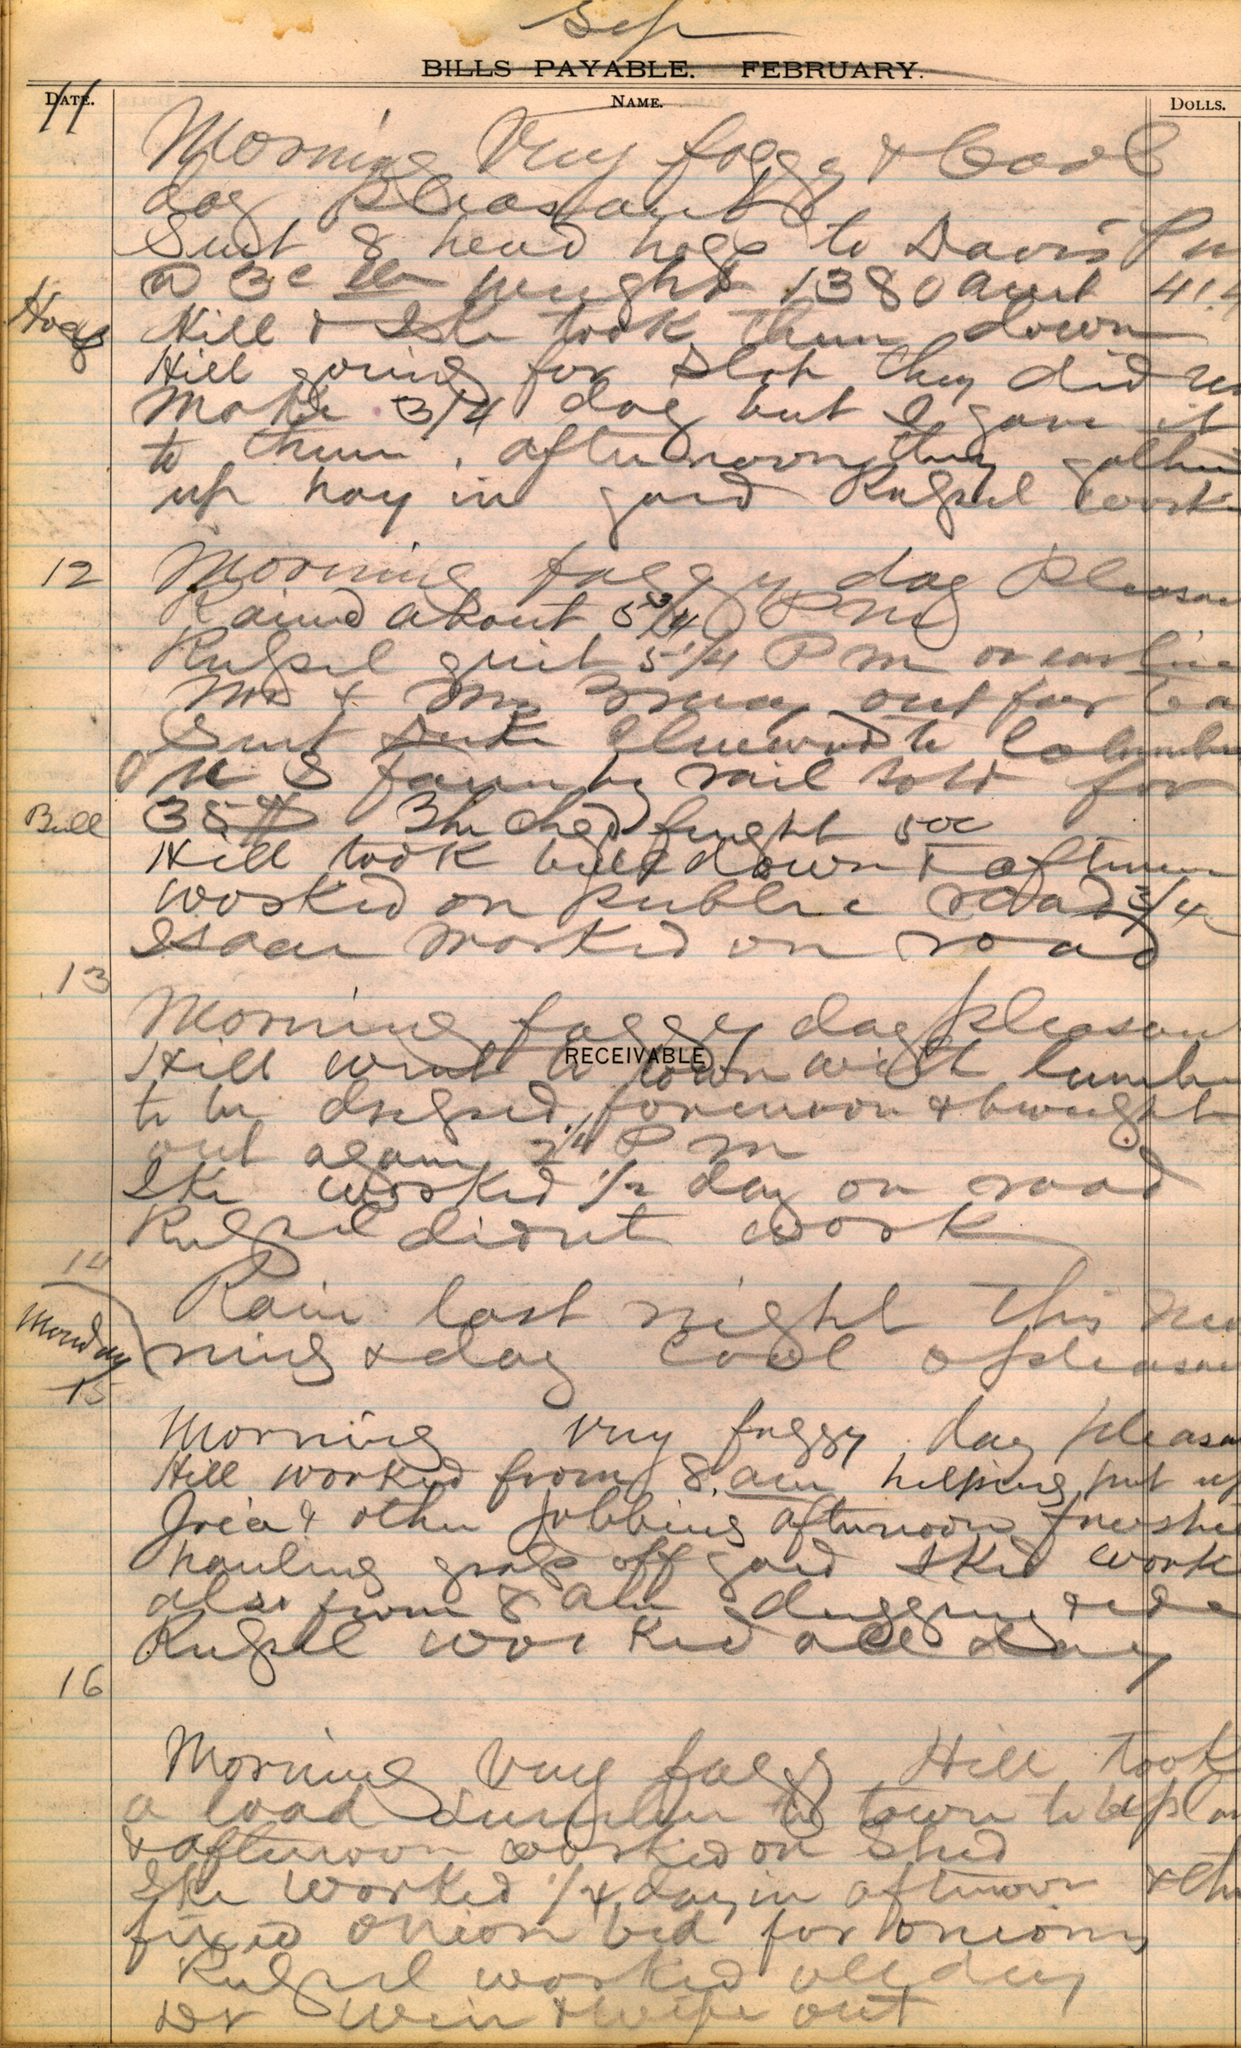 Sep
BILLS PAYABLE. FEBRUARY.
DATE. NAME. DOLLS.
11
Morning Very foggy & Cool
day pleasant
Sent 8 head hogs to Davis
@ 3c lb weight 1380 amt 41.4
Hogs Hill & Ike took them down
Hill going for slop they did
make 3/4 day but I gave it
to them. afternoon they gather
up hay in yard Russel work
12 Morning foggy day Pleasan
Raind about 5 3/4 P M
Russel quit 5 1/4 P M or earlier
Mr & Mrs out for tea
Sent Duke to Columbu
sold for
Bull 35 freight 50c
Hill took bull down & afternoon
worked on public road 3/4
Isaac worked on road
13
Morning foggy day pleasan
RECEIVABLE
Hill went to town with lumbe
to be forenoon & brought
out again 2 1/4 P M
Ike worked 1/2 day on road
Russel didnt work
14 Rain last night this mor
Monday ning & day cool & pleasan
15
Morning very foggy day pleasa
Hill worked from 8 am helping put up
& other jobbing afternoon finishe
hauling grass off yard Ike work
also from 8 am digging
Russel worked all day
16
Morning very foggy Hill took
a load Lumber to town to be plan
& afternoon worked on Shed
Ike worked 1/4 day in afternoon
fixed onion bed for onions
Russel worked all day
Dr & wife out